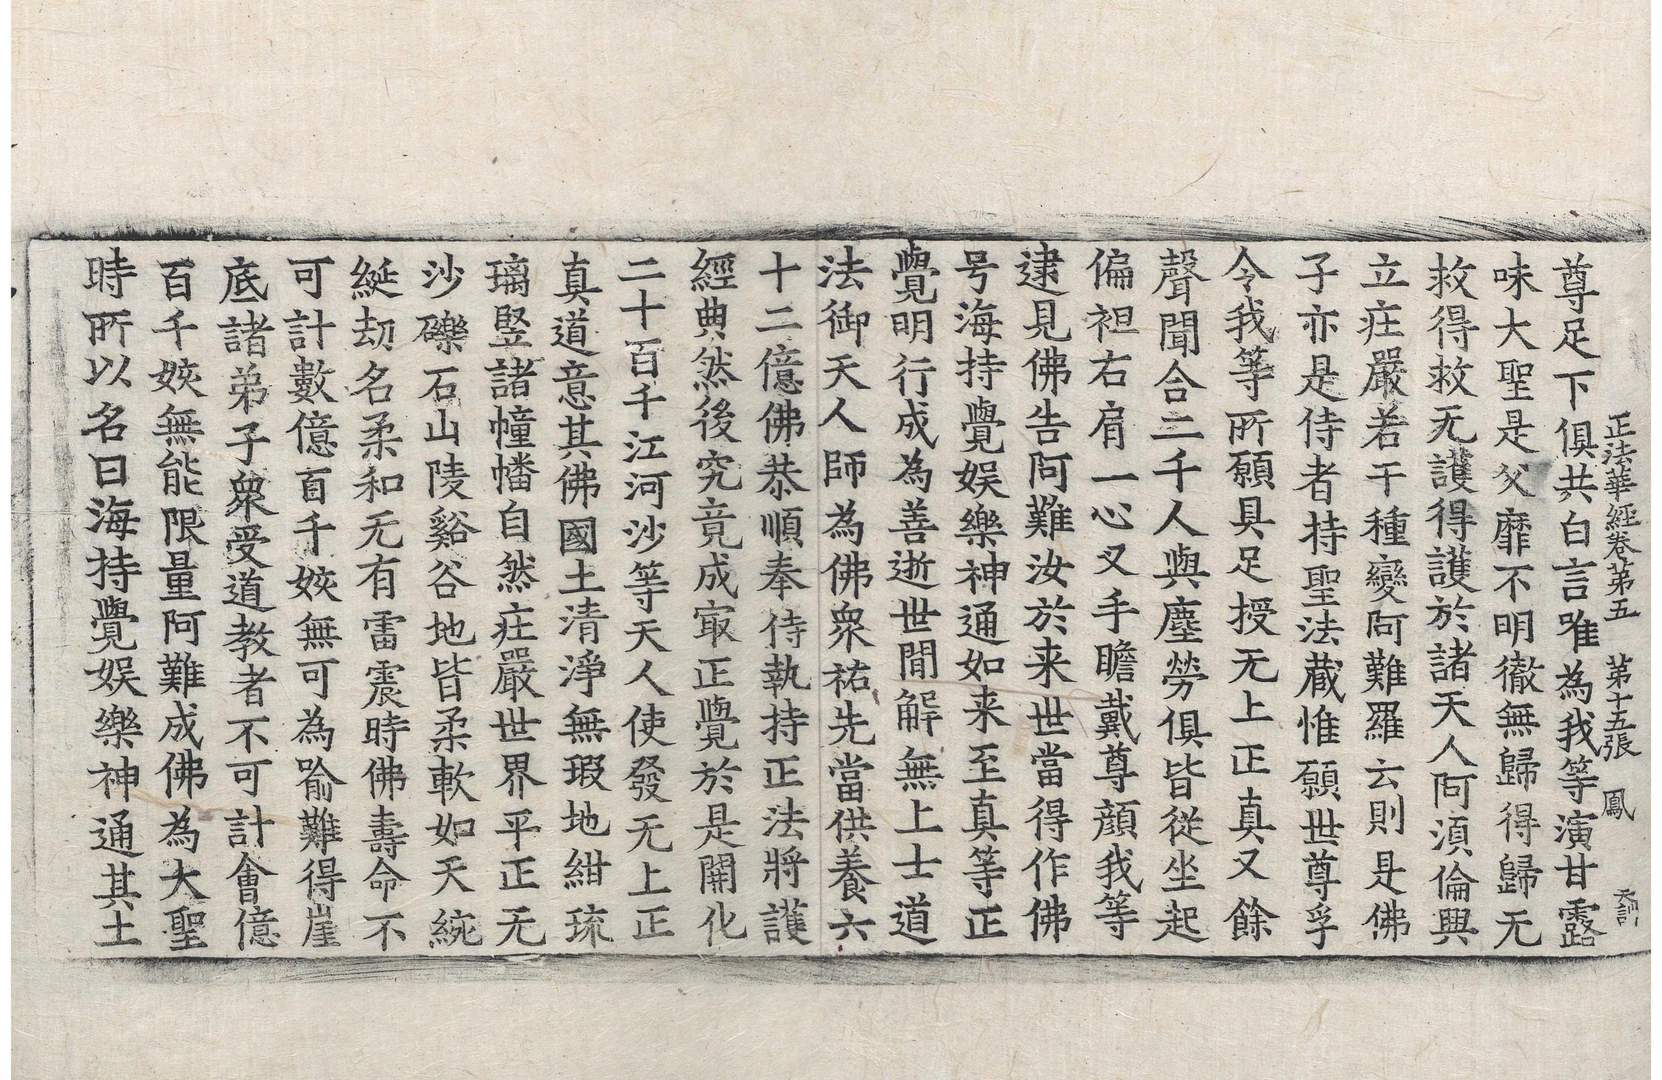 正法華經卷第五 第十五張 鳳
尊足下俱共白言唯為我等演甘露
味大聖是父靡不明徹無歸得歸无
救得救无護得護於諸天人阿湏倫興
立庄嚴若干種變阿難羅云則是佛
子亦是侍者持聖法蔵惟願世尊孚
令我等所願具足授无上正真又餘
聲聞合二千人與塵勞俱皆從坐起
偏袒右肩一心叉手瞻戴尊顔我等
逮見佛告阿難汝於来世當得作佛
号海持覺娱樂神通如来至真等正
覺明行成為善逝世間解無上士道
法御天人師為佛衆祐先當供養六
十二億佛恭順奉侍執持正法將護
經典然後究竟成㝡正覺於是開化
二十百千江河沙等天人使發无上正
真道意其佛國土清淨無瑕地紺琉
璃竪諸幢幡自然庄嚴世界平正无
沙礫石山陵谿谷地皆柔軟如天綩
綖劫名柔和无有雷震時佛壽命不
可計數億百千姟無可為喻難得崖
底諸弟子衆受道教者不可計會億
百千姟無能限量阿難成佛為大聖
時所以名曰海持覺娱樂神通其土